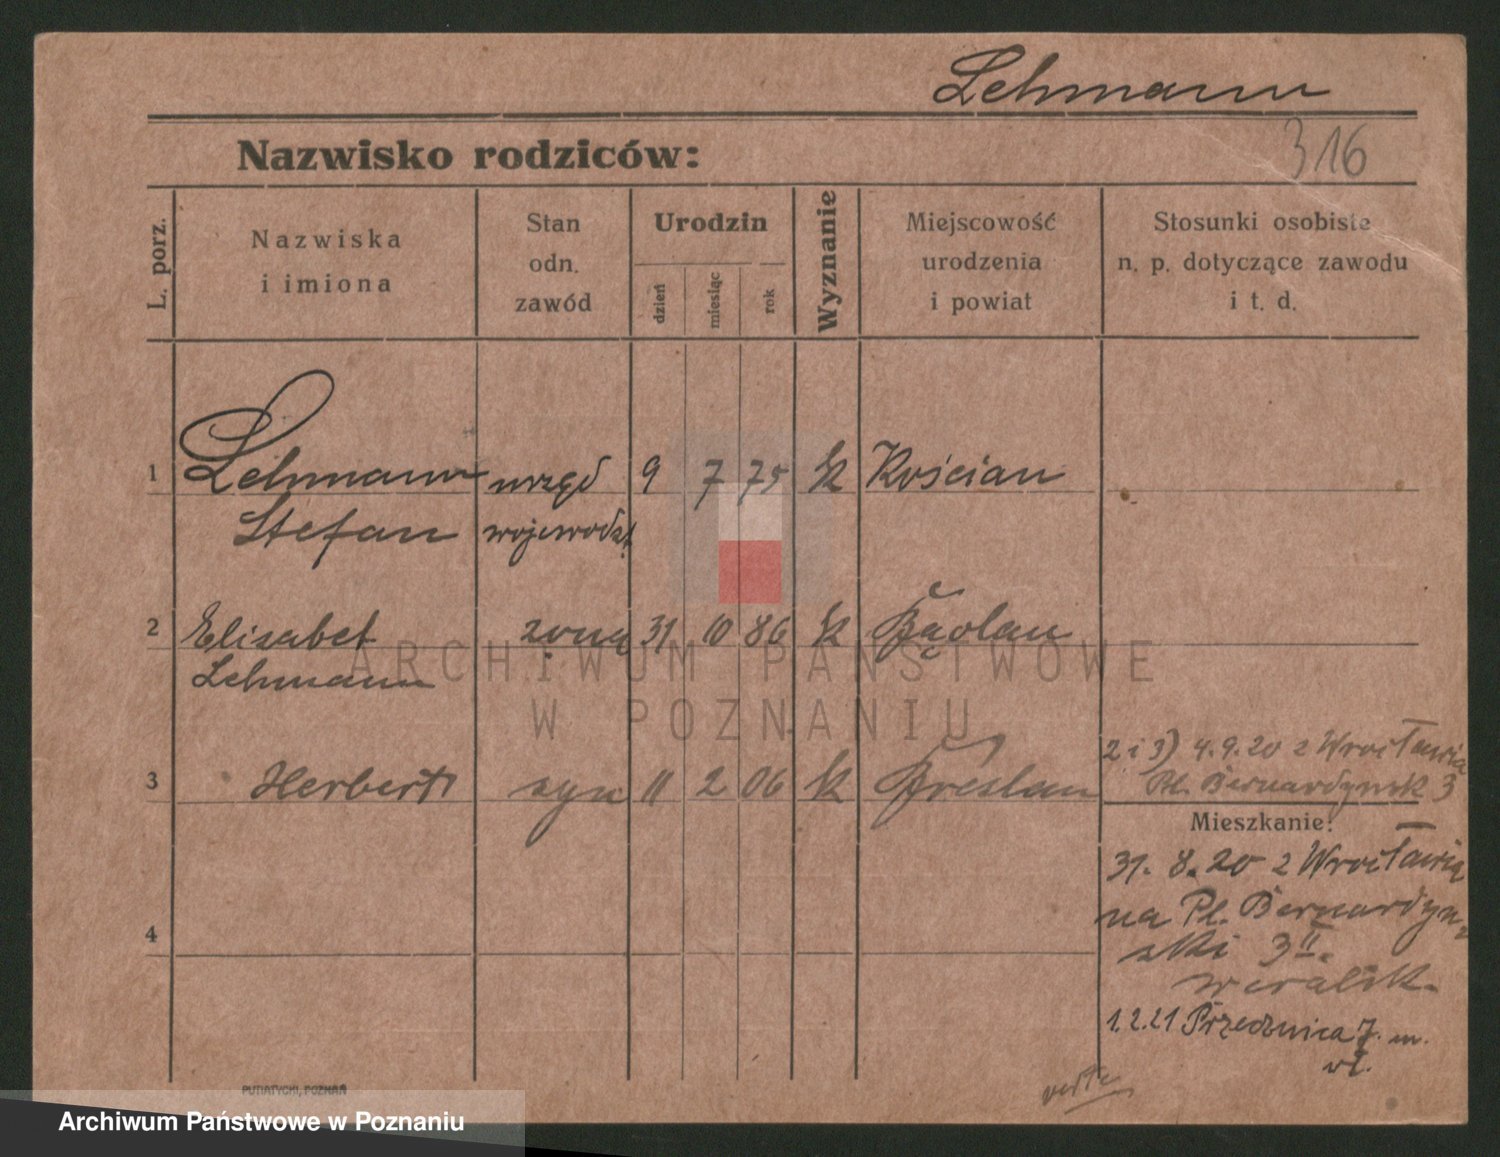 Lehmann
Nazwisko rodziców:
316
L. porz.
Nazwiska
i imiona
Stan
odn.
zawód
Urodzin
dzień
miesiąc
rok
Wyznanie
Miejscowość
urodzenia
i powiat
Stosunki osobiste
n. p. dotyczące zawodu
i t. d.
1 Lehmann urzęd 9 7 75 k Kościan
Stefan wojewodzt
2 Elisabet żona 31 10 86 k
Lehmann
2 i 3) 4.9.20 z Wrocławia
Pl. Bernardynsk 3
3 Herbert syn 11 2 06 k Breslau
Mieszkanie:
31. 8. 20 z Wrocławia
na Pl. Bernardyn-
ski 3 II.
4
1.2.21 Przecznica 7. m.
verte
PUTIATYCKI, POZNAŃ
ARCHIWUM PAŃSTWOWE
W POZNANIU
Archiwum Państwowe w Poznaniu